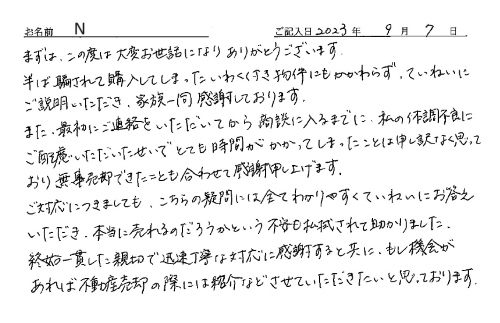 お名前 N ご記入日 2023年 9月 7日
まずは、この度は大変お世話になりありがとうございます。
半ば騙されて購入してしまったいわくつき物件にもかかわらず、ていねいに
ご説明いただき、家族一同感謝しております。
また、最初にご連絡をいただいてから商談に入るまでに、私の体調不良に
ご配慮いただいたせいでとても時間がかかってしまったことは申し訳なく思って
おり無事売却できたことも合わせて感謝申し上げます。
ご対応につきましても、こちらの疑問には全てわかりやすくていねいにお答え
いただき、本当に売れるのだろうかという不安も払拭されて助かりました。
終始一貫した親切で迅速丁寧な対応に感謝すると共に、もし機会が
あれば不動産売却の際には紹介などさせていただきたいと思っております。